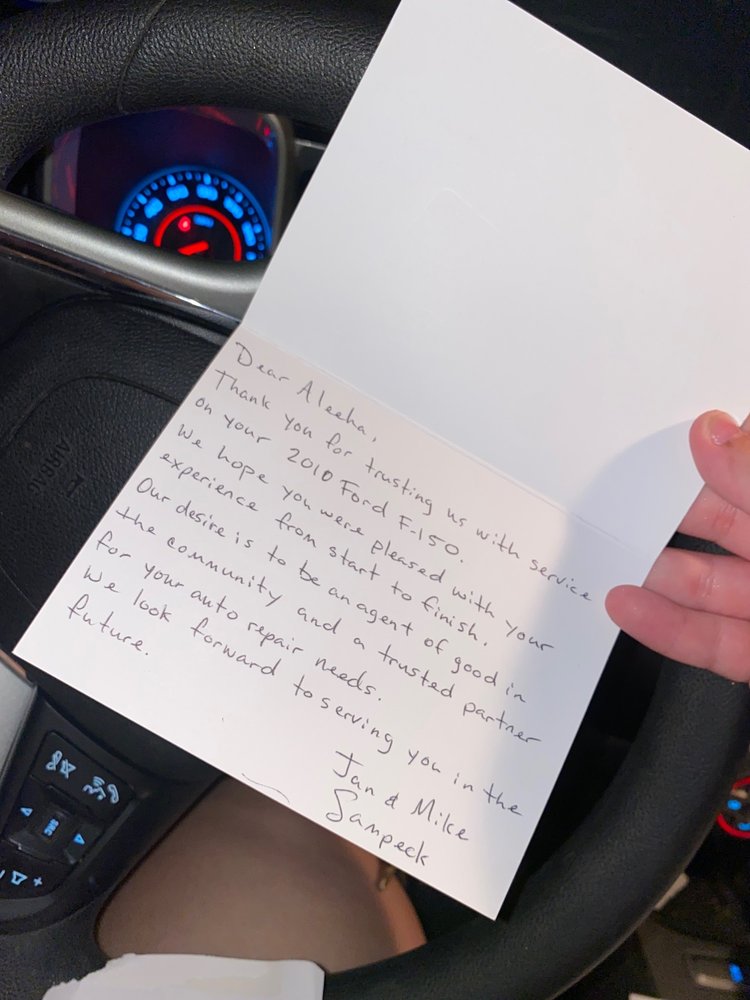 Dear Aleeha,
Thank you for trusting us with service
on your 2010 Ford F-150.
We hope you were pleased with your
experience from start to finish.
Our desire is to be an agent of good in
the community and a trusted partner
for your auto repair needs.
We look forward to serving you in the
future.
Jan & Mike
Sampeck
AIRBAG